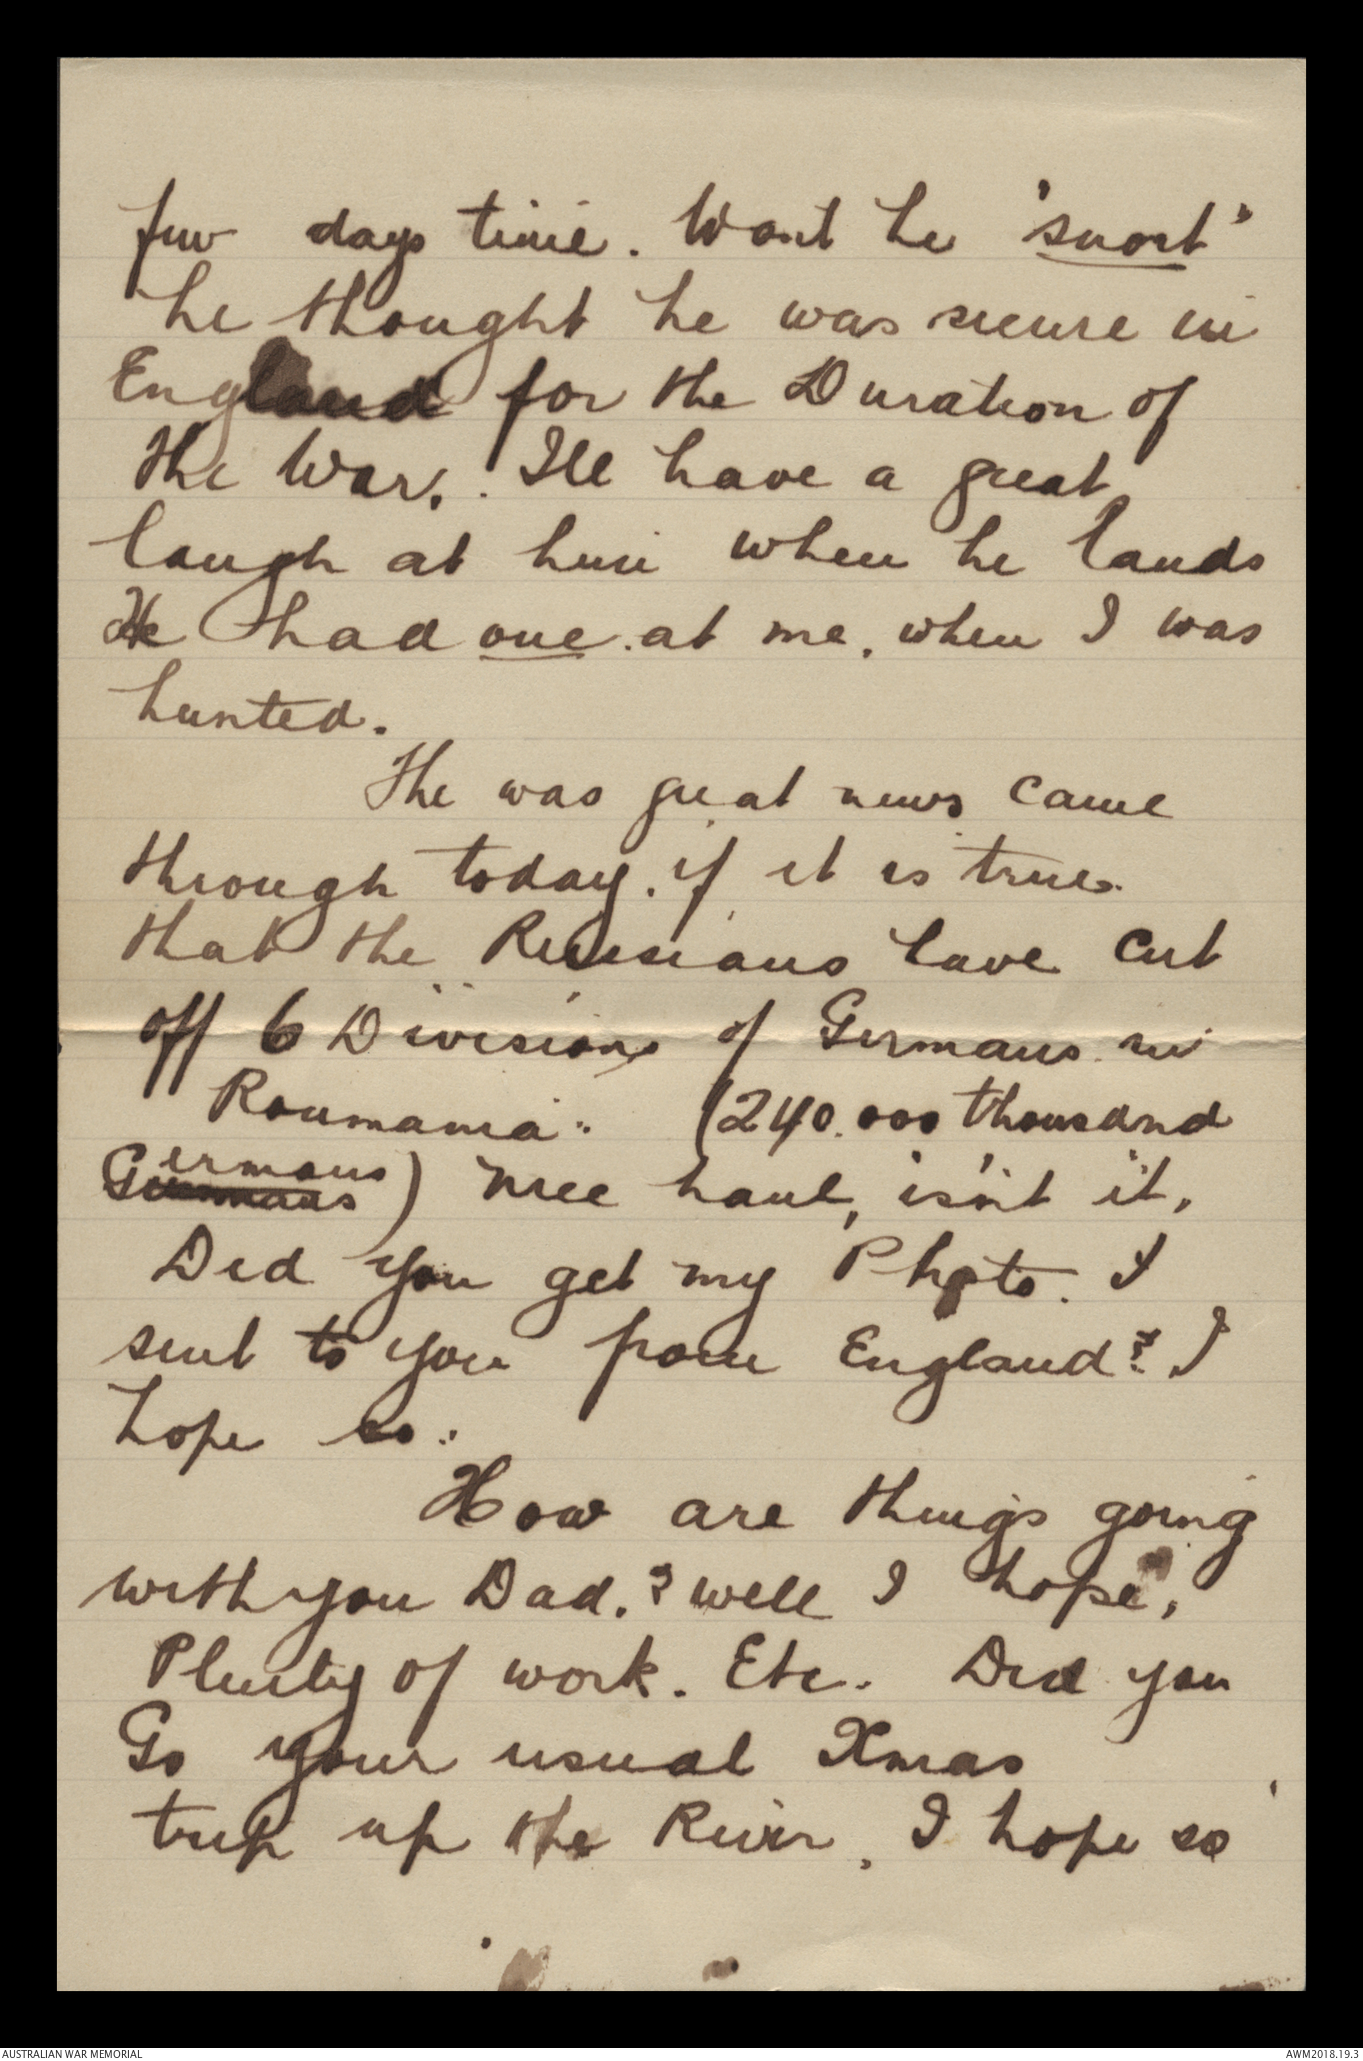 few days time. Wont he 'snort'
he thought he was secure in
England for the Duration of
the War. Ill have a great
laugh at him when he lands
He had one at me, when I was
hunted.
The was great news came
through today, if it is true.
that the Russians have cut
off 6 Divisions of Germans in
Roumania. (240.000 thousand
Germans) nice haul, isn't it,
Did you get my Photo. I
sent to you from England? I
hope so.
How are things going
with you Dad.? well I hope,
Plenty of work. Etc. Did you
Go your usual Xmas
trip up the River, I hope so
AUSTRALIAN WAR MEMORIAL
AWM2018.19.3